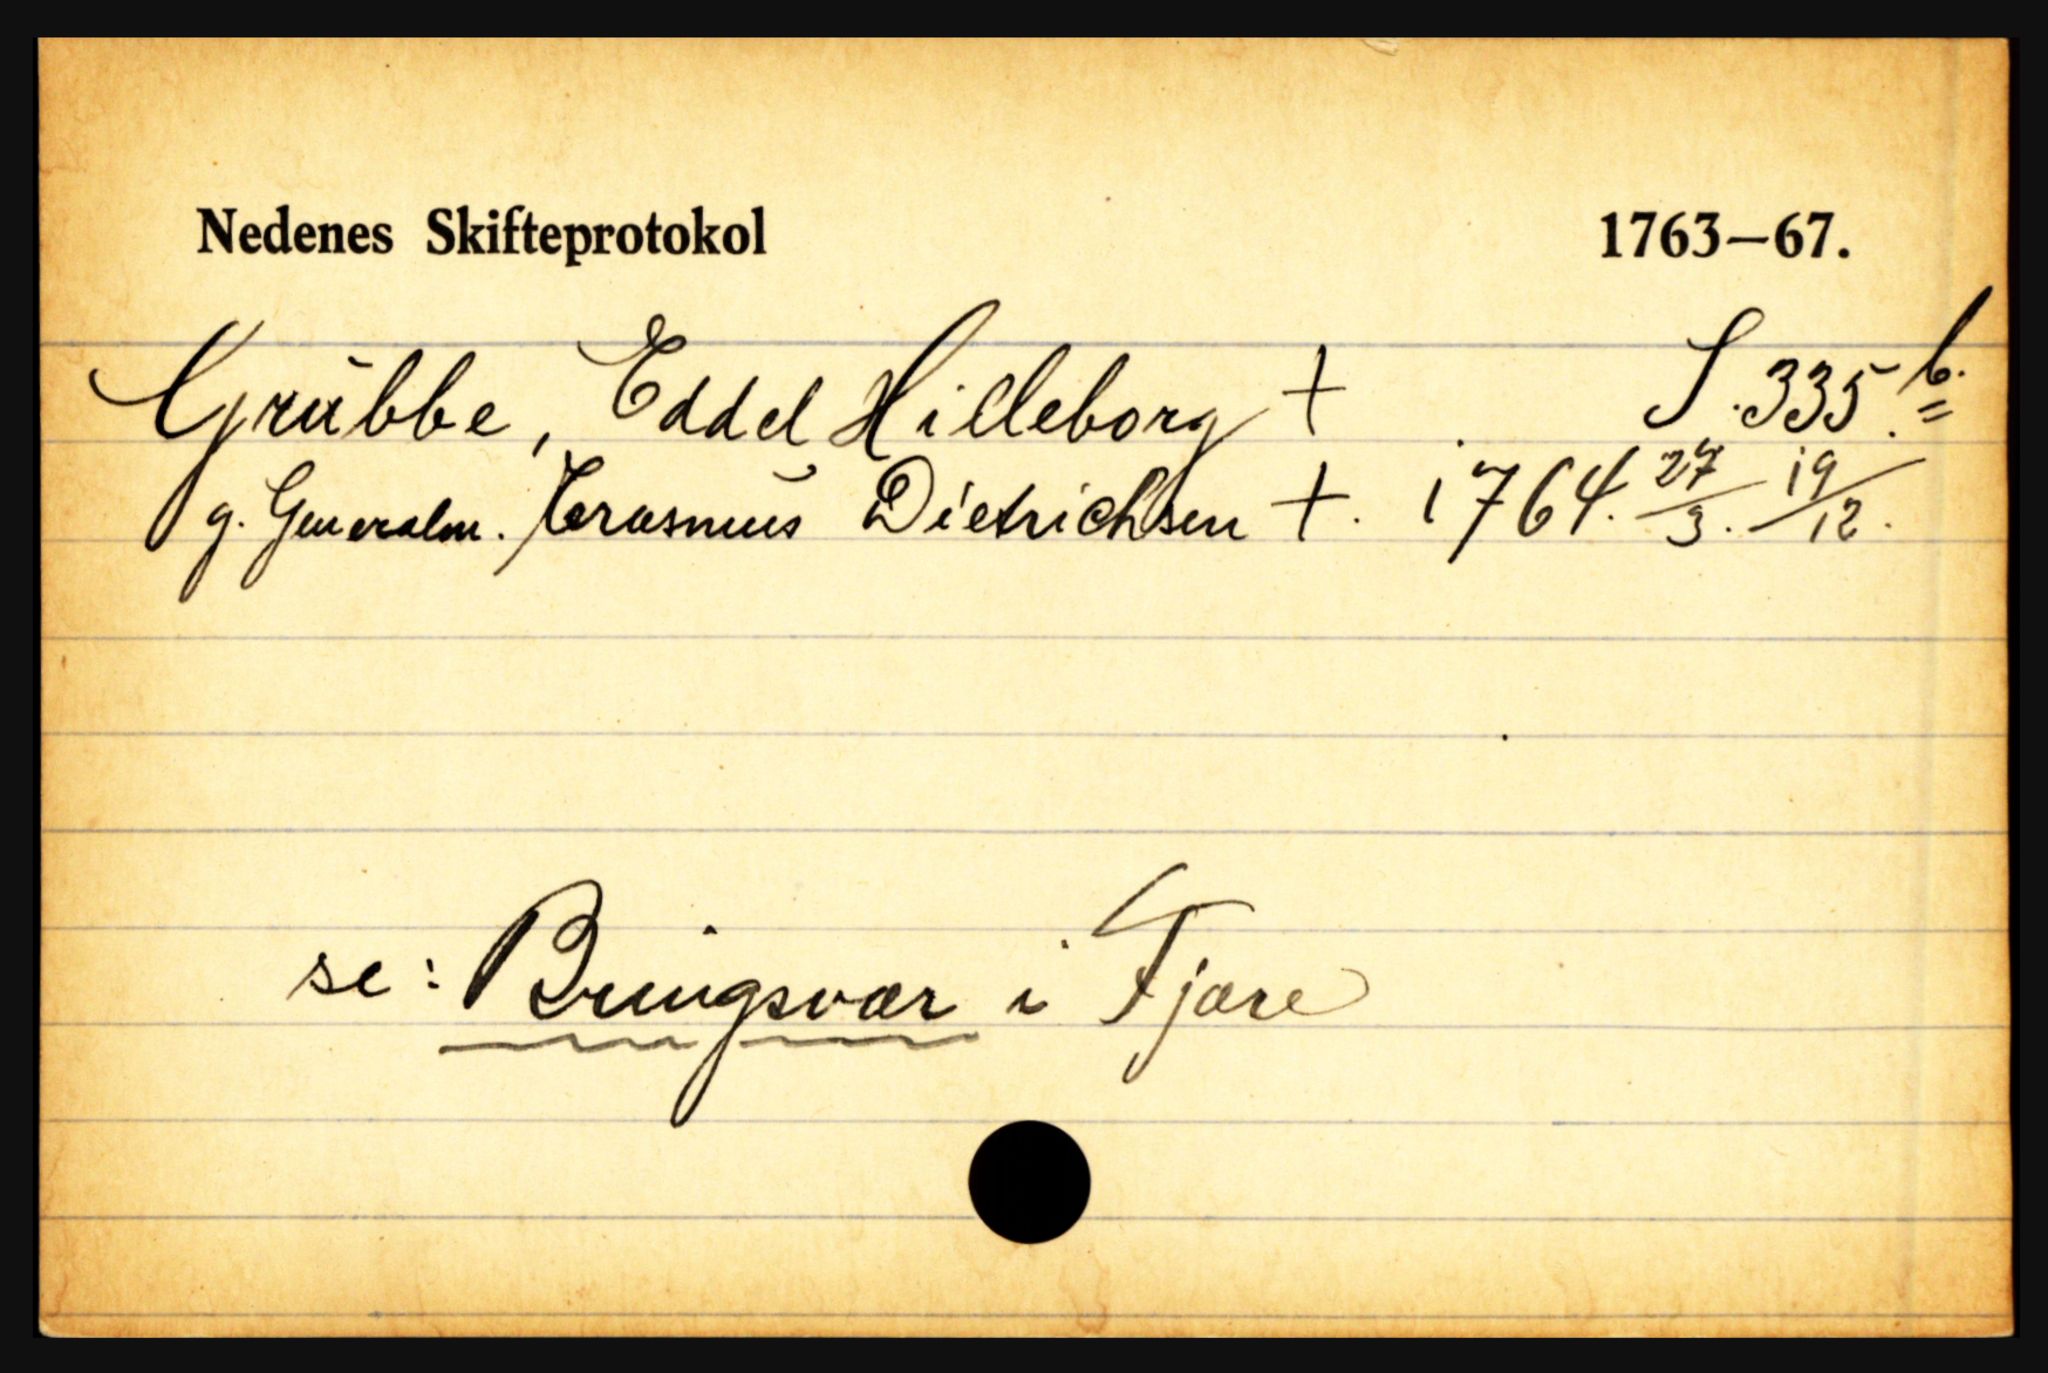 Nedenes Skifteprotokol 1763—67.
Grübbe, Eddel Hilleborg + S. 335.b.
g. Generalm. Erasmus Dietrichsen +. 1764. 27/3. 19/12.
se: Bringsvær i Fjære